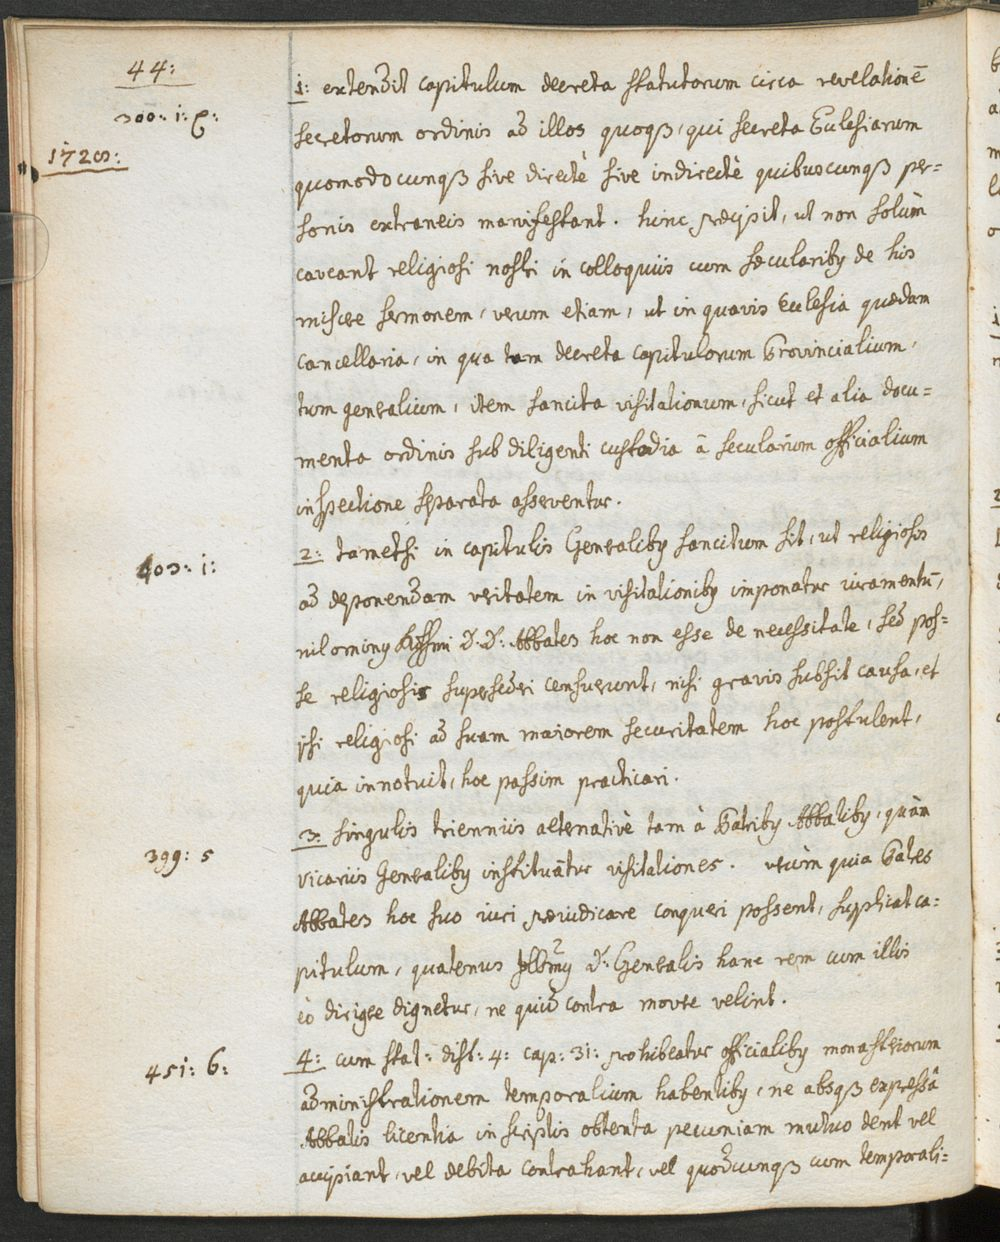 44:
300: 1: C:
1728:
1: extendit capitulum decreta statutorum circa revelationē
secretorum ordinis ad illos quoqꝫ, qui secreta Ecclesiarum
quomodocunqꝫ sive directè sive indirectè quibuscunqꝫ per=
sonis extraneis manifestant. hinc præcipit, ut non solùm
caveant religiosi nostri in colloquiis cum sæculariby de his
miscere sermonem, verum etiam, ut in quavis Ecclesia quædam
cancellaria, in qua tam decreta capitulorum Provincialium,
tum generalium, item sancita visitationum, sicut et alia docu=
menta ordinis sub diligenti custodia â secularium officialium
inspectione separata asserventur.
403: 1:
2: tametsi in capitulis Generaliby sancitum sit, ut religiosis
ad deponendam veritatem in visitationiby imponatur iuramentū,
nilominy Rssmi D. D: Abbates hoc non esse de necessitate, sed pos=
se religiosis supersederi censuerunt, nisi gravis subsit causa, et
ipsi religiosi ad suam maiorem securitatem hoc postulent,
quia innotuit, hoc passim practicari.
399: 5
3: singulis trienniis alternativè tam à Patriby Abbatiby, quàm
vicariis Generaliby instituātur visitationes. verùm quia Patres
Abbates hoc suo iuri præiudicare conqueri possent, supplicat ca=
pitulum, quatenus Illmy D: Generalis hanc rem cum illis
eò dirigere dignetur, ne quid contra movere velint.
451: 6:
4: cum stat: dist: 4: cap: 31: prohibeatur officialiby monasteriorum
administrationem temporalium habentiby, ne absqꝫ expressâ
Abbatis licentia in scriptis obtenta pecuniam mutuo dent vel
accipiant, vel debita contrahant, vel quodcunqꝫ cum temporali=